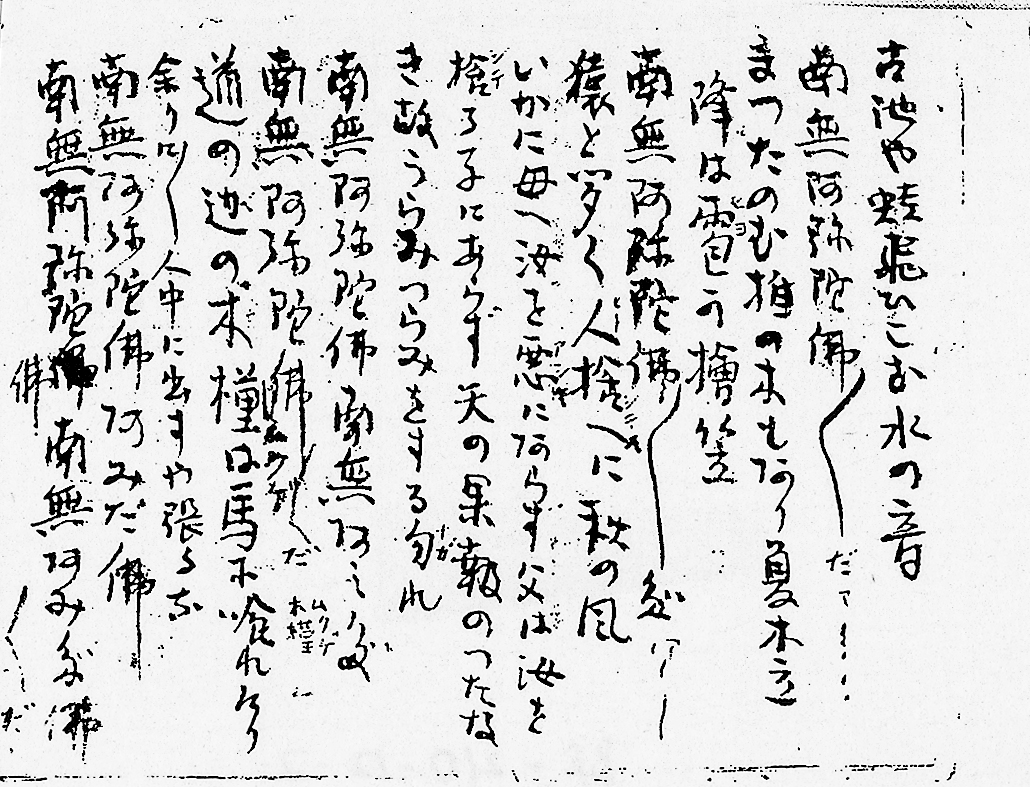 古池や蛙飛ひこむ水の音
南無阿弥陀佛 だアー
まつたのむ椎の木もあり夏木立
降は雹カ檜笠 ヒヨ
南無阿弥陀佛
猿と聞く人捨へに秋の風
いかに母へ汝を悪にあらず父は汝を
捨る子にあらず天の果報のつたな
き故うらみつらみをする勿れ
南無阿弥陀佛南無阿
南無阿弥陀佛 だ 木槿
道の辺の木槿は馬に喰れけり
余り 人中に出すや張
南無阿弥陀佛阿みだ佛
南無阿弥陀佛 南無阿みだ佛
佛 だ